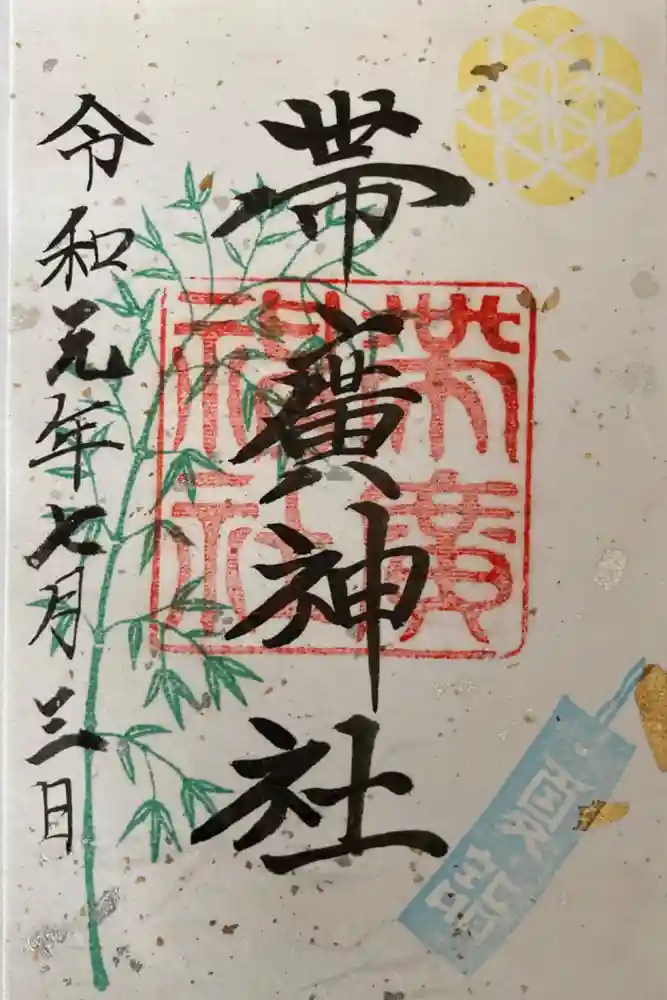 帯廣神社
帯廣
神社
令和元年七月三日
夏詣